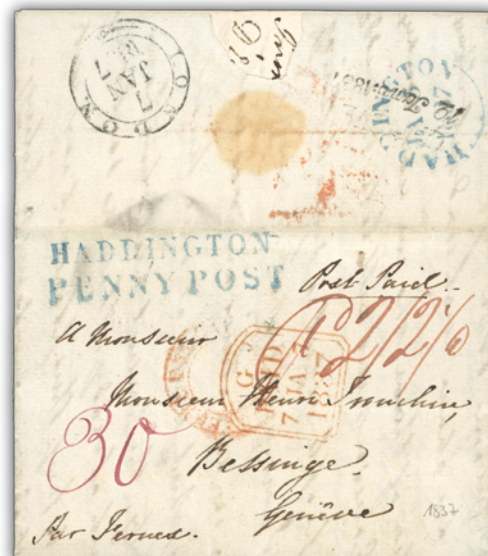 LONDON
7
JAN
1837
HADDINGTON
HADDINGTON
PENNY POST
Post Paid.
Pd 2/2½
A Monsieur
G
PAID
7 JA 7
1837
Monsieur Henri Tronchin,
30
Bessinge.
Genêve
1837
Par Fernex.